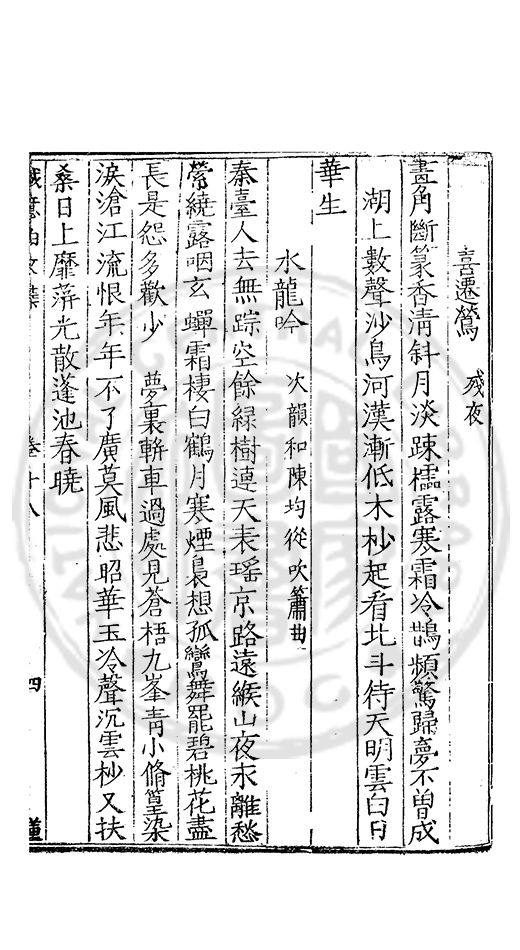 喜遷鶯　殘夜
畫角斷篆香清斜月淡踈櫺露寒霜冷鵲頻驚歸夢不曽成
湖上數聲沙鳥河漢漸低木杪起看北斗待天明雲白日
華生
水龍吟　次韻和陳均從吹簫曲
秦臺人去無踪空餘緑樹連天表瑶京路遠緱山夜永離愁
縈繞露咽玄蟬霜棲白鶴月寒煙裊想孤鸞舞罷碧桃花盡
長是怨多歡少　夢裏輧車過處見蒼梧九峯青小脩篁染
淚滄江流恨年年不了廣莫風悲昭華玉冷聲沉雲杪又扶
桑日上靡蓱光散蓬池春曉
卷十八
四